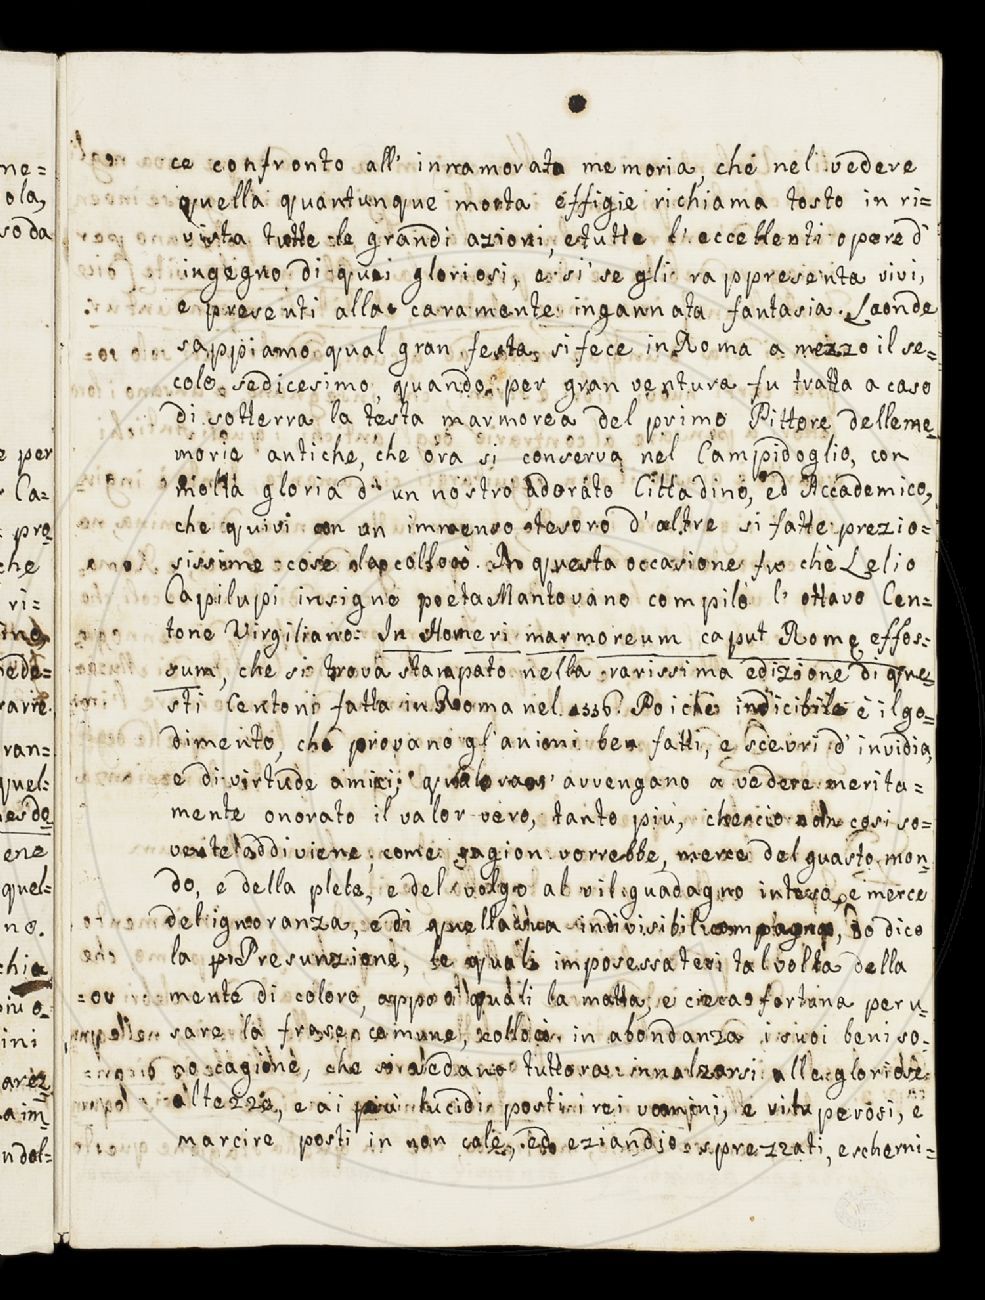 ce confronto all' innamorata memoria, che nel vedere
quella quantunque morta effigie richiama tosto in ri=
vista tutte le grandi azioni, e tutte l' eccellenti opere d'
ingegno di quei gloriosi, e si se gli rappresenta vivi,
e presenti alla caramente ingannata fantasia. Laonde
sappiamo qual gran festa si fece in Roma a mezzo il se=
colo sedicesimo, quando per gran ventura fu tratta a caso
di sotterra la testa marmorea del primo Pittore delle me=
morie antiche, che ora si conserva nel Campidoglio, con
molta gloria d' un nostro adorato Cittadino, ed Accademico,
che quivi con un immenso tesoro d' altre si fatte prezio=
sissime cose la collocò. In questa occasione fu chè Lelio
Capilupi insigne poeta Mantovano compilo l' ottavo Cen=
tone Virgiliano: In Homeri marmoreum caput Rome effos=
sum, che si trova stampato nella rarissima edizione di que=
sti Centoni fatta in Roma nel 1556. Poiche indicibile è il go=
dimento, che provano gl' animi ben fatti, e scevri d' invidia,
e di virtude amici, qualora avvengano a vedere merita=
mente onorato il valor vero, tanto più, che ciò non cosi so=
vente addiviene, come ragion vorrebbe, merce del guasto mon
do, e della plebe, e del volgo al vil guadagno intesa, e merce
del ignoranza, e di quella sua indivisibil compagna, io dico
la Presunzione, le quali impossessatesi talvolta della
mente di coloro, appo i quali la matta, e cieca fortuna per u=
sare la frase comune, collocò in abondanza i suoi beni so=
no cagione, che si vedano tuttora innalzarsi alle gloriose
altezze, e ai più lucidi posti i rei uomini, e vituperosi, e
marcire posti in non cale, ed eziandio sprezzati, e scherni=